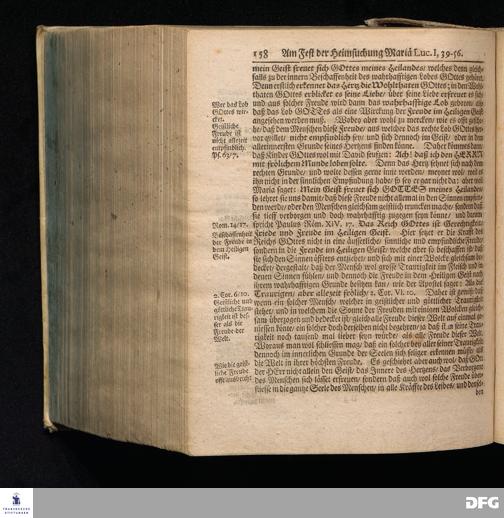 158 Am Fest der Heimsuchung Mariä Luc. I, 39-56.
mein Geist freuet sich GOttes meines Heilandes/ welches denn gleich-
falls zu der innern Beschaffenheit des wahrhafftigen Lobes GOttes gehöret.
Denn erstlich erkennet das Hertz die Wohlthaten GOttes; in den Wohl-
thaten GOttes erblicket es seine Liebe/ über seine Liebe erfreuet es sich/
und aus solcher Freude wird dann das wahrhafftige Lob gebohren/ also
daß das Lob GOTTes als eine Würckung der Freude im Heiligen Geist
angesehen werden muß. Wobey aber wohl zu mercken/ wie es offt gesche-
he/ daß dem Menschen diese Freude/ aus welcher das rechte Lob GOttes her-
vor quillet/ nicht empfindlich sey/ und sich dennoch im Geist/ oder in dem
allerinnersten Grunde seines Hertzens finden könne. Daher kömmts dann/
daß Kinder GOttes wol mit David seufzen: Ach! daß ich den HERRN
mit frölichem Munde loben solte. Denn das Hertz sehnet sich nach dem
rechten Grunde/ und wolte dessen gerne inne werden/ meynet wol/ weil es
ihn nicht in der sinnlichen Empfindung habe/ so sey er gar nicht da: aber weil
Maria saget: Mein Geist freuet sich GOTTES meines Heilandes/
so lehret sie uns damit/ daß diese Freude nicht allemal in den Sinnen empfun-
den werde/ oder den Menschen gleichsam geistlich truncken mache/ sondern daß
sie tieff verborgen und doch wahrhafftig zugegen seyn könne/ und darum
spricht Paulus Röm. XIV. 17. Das Reich GOttes ist Gerechtigkeit/
Friede und Freude im Heiligen Geist. Hier setzet er die Krafft des
Reichs GOttes nicht in eine äusserliche/ sinnliche und empfindliche Freude/
sondern in die Freude im Heiligen Geist/ welche aber so beschaffen ist/ daß
sie sich den Sinnen öffters entziehet/ und sich mit einer Wolcke gleichsam be-
decket/ dergestalt/ daß der Mensch wol grosse Traurigkeit im Fleisch und in
denen Sinnen fühlen/ und dennoch die Freude in dem Heiligen Geist nach
ihrem wahrhafftigen Grunde besitzen kan/ wie der Apostel saget: Als die
Traurigen/ aber allezeit frölich/ 2. Cor. VI. 10. Daher ist gewiß/ daß
wenn ein solcher Mensch/ welcher in geistlicher und göttlicher Traurigkeit
stehet/ und in welchem die Sonne der Freuden mit einigen Wolcken gleich-
sam überzogen und bedecket ist/ gleich alle Freude dieser Welt auf einmal ge-
niessen könte/ ein solcher doch derselben nicht begehren/ ja daß ihm seine Trau-
rigkeit noch tausend mal lieber seyn würde/ als alle Freude dieser Welt.
Woraus man wol schliessen mag/ daß ein solcher bey aller seiner Traurigkeit
dennoch im innerlichen Grunde der Seelen sich seliger erkennen müsse/ als
die Welt in ihrer höchsten Freude. Es geschiehet aber auch wol/ daß GOtt
der HErr nicht allein den Geist/ das Innere des Hertzens/ das Verborgene
des Menschen sich lässet erfreuen/ sondern daß auch wol solche Freude über-
fliesse in die gantze Seele des Menschen/ in alle Kräffte des Leibes/ und dersel-
ben
Wer das Lob
GOttes wir-
cket.
Geistliche
Freude ist
nicht allezeit
empfindlich.
Ps. 63/7.
Rom. 14/17.
Beschaffenheit
der Freude in
dem Heiligen
Geist.
2. Cor. 6/10.
Geistliche und
göttliche Trau-
rigkeit ist bes-
ser als die
Freude der
Welt.
Wie die geist-
liche Freude
offt ausbricht
FRANCKESCHE
STIFTUNGEN
DFG